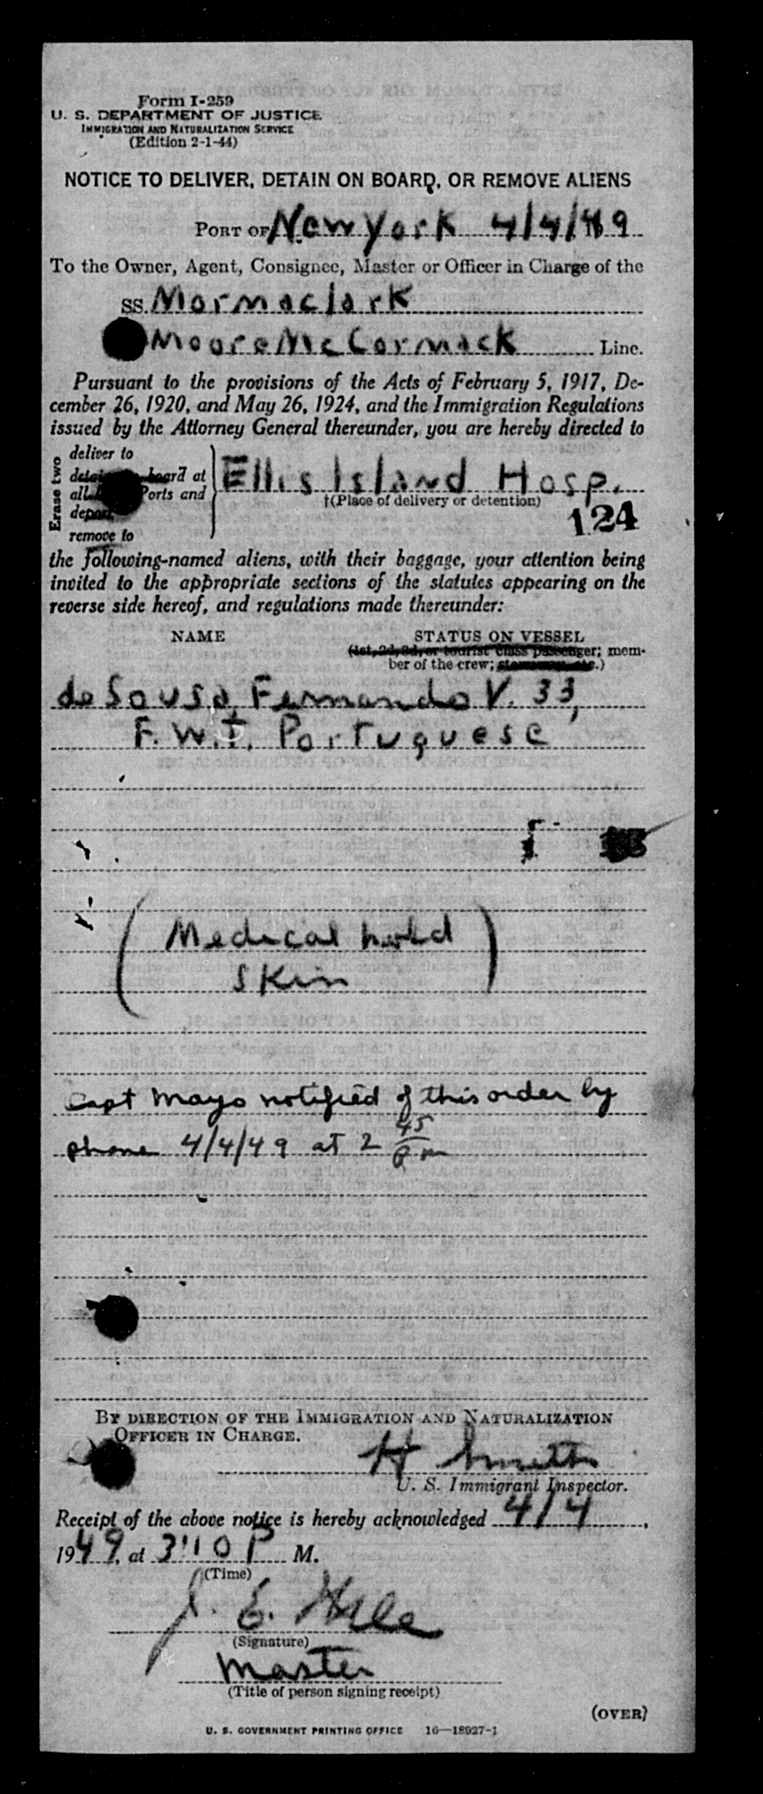 Form I-259
U. S. DEPARTMENT OF JUSTICE
IMMIGRATION AND NATURALIZATION SERVICE
(Edition 2-1-44)
NOTICE TO DELIVER, DETAIN ON BOARD, OR REMOVE ALIENS
PORT OF New York 4/4/49
To the Owner, Agent, Consignee, Master or Officer in Charge of the
SS. Mormaclark
Moore McCormack Line.
Pursuant to the provisions of the Acts of February 5, 1917, De-
cember 26, 1920, and May 26, 1924, and the Immigration Regulations
issued by the Attorney General thereunder, you are hereby directed to
Erase two
deliver to
board at
all ports and
remove to
Ellis Island Hosp.
†(Place of delivery or detention)
124
the following-named aliens, with their baggage, your attention being
invited to the appropriate sections of the statutes appearing on the
reverse side hereof, and regulations made thereunder:
NAME STATUS ON VESSEL
(1st, 2d, 3d, or tourist class passenger; mem-
ber of the crew; .)
de Sousa, Fernando V. 33,
F.W.T. Portuguese
(Medical hold
skin)
Capt Mayo notified of this order by
phone 4/4/49 at 2 45 pm
BY DIRECTION OF THE IMMIGRATION AND NATURALIZATION
OFFICER IN CHARGE.
H Smith
U. S. Immigrant Inspector.
Receipt of the above notice is hereby acknowledged 4/4,
1949, at 3:10 P M.
(Time)
J. E.
(Signature)
Master
(Title of person signing receipt)
(OVER)
U. S. GOVERNMENT PRINTING OFFICE 16—18927-1